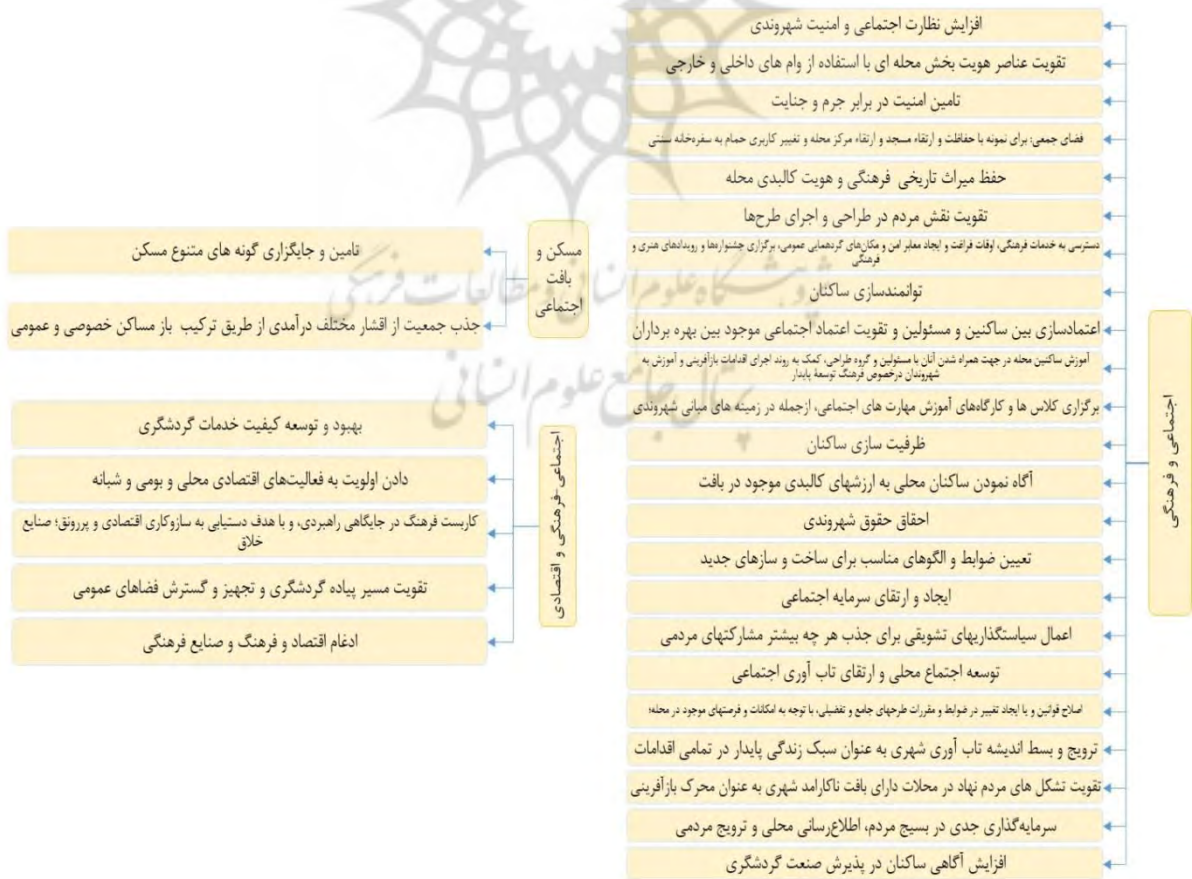 اجتماعی و فرهنگی
افزایش نظارت اجتماعی و امنیت شهروندی
تقویت عناصر هویت بخش محله ای با استفاده از وام های داخلی و خارجی
تامین امنیت در برابر جرم و جنایت
فضای جمعی: برای نمونه با حفاظت و ارتقاء مسجد و ارتقاء مرکز محله و تغییر کاربری حمام به سفره‌خانه سنتی
حفظ میراث تاریخی فرهنگی و هویت کالبدی محله
تقویت نقش مردم در طراحی و اجرای طرح‌ها
دسترسی به خدمات فرهنگی، اوقات فراغت و ایجاد معابر امن و مکان‌های گردهمایی عمومی، برگزاری جشنواره‌ها و رویدادهای هنری و
فرهنگی
توانمندسازی ساکنان
اعتمادسازی بین ساکنین و مسئولین و تقویت اعتماد اجتماعی موجود بین بهره برداران
آموزش ساکنین محله در جهت همراه شدن آنان با مسئولین و گروه طراحی، کمک به روند اجرای اقدامات بازآفرینی و آموزش به
شهروندان درخصوص فرهنگ توسعهٔ پایدار
برگزاری کلاس ها و کارگاه‌های آموزش مهارت های اجتماعی، ازجمله در زمینه های مبانی شهروندی
ظرفیت سازی ساکنان
آگاه نمودن ساکنان محلی به ارزشهای کالبدی موجود در بافت
احقاق حقوق شهروندی
تعیین ضوابط و الگوهای مناسب برای ساخت و سازهای جدید
ایجاد و ارتقای سرمایه اجتماعی
اعمال سیاستگذاریهای تشویقی برای جذب هر چه بیشتر مشارکتهای مردمی
توسعه اجتماع محلی و ارتقای تاب آوری اجتماعی
اصلاح قوانین و یا ایجاد تغییر در ضوابط و مقررات طرحهای جامع و تفضیلی، با توجه به امکانات و فرصتهای موجود در محله؛
ترویج و بسط اندیشه تاب آوری شهری به عنوان سبک زندگی پایدار در تمامی اقدامات
تقویت تشکل های مردم نهاد در محلات دارای بافت ناکارامد شهری به عنوان محرک بازآفرینی
سرمایه‌گذاری جدی در بسیج مردم، اطلاع‌رسانی محلی و ترویج مردمی
افزایش آگاهی ساکنان در پذیرش صنعت گردشگری
مسکن و
بافت
اجتماعی
تامین و جایگزاری گونه های متنوع مسکن
جذب جمعیت از اقشار مختلف درآمدی از طریق ترکیب باز مساکن خصوصی و عمومی
اجتماعی-فرهنگی و اقتصادی
بهبود و توسعه کیفیت خدمات گردشگری
دادن اولویت به فعالیت‌های اقتصادی محلی و بومی و شبانه
کاربست فرهنگ در جایگاهی راهبردی، و با هدف دستیابی به سازوکاری اقتصادی و پررونق؛ صنایع
خلاق
تقویت مسیر پیاده گردشگری و تجهیز و گسترش فضاهای عمومی
ادغام اقتصاد و فرهنگ و صنایع فرهنگی
پژوهشگاه علوم انسانی و مطالعات فرهنگی
پرتال جامع علوم انسانی